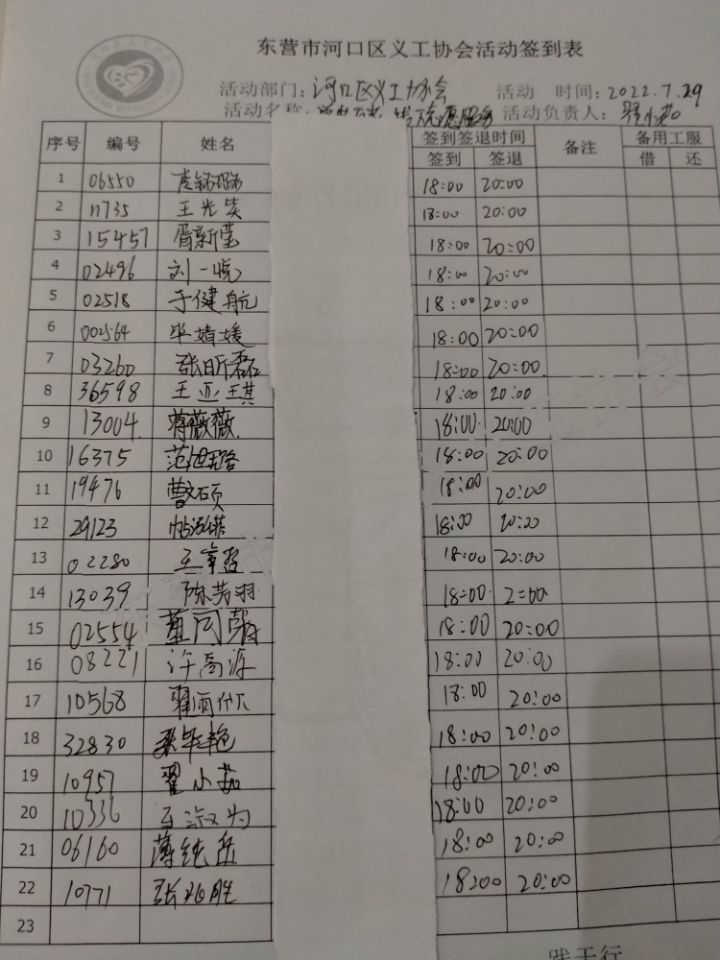 东营市河口区义工协会活动签到表
活动部门：河口区义工协会 活动 时间：2022.7.29
活动名称： 志愿服务 活动负责人：翟小茹
序号 编号 姓名 签到签退时间 备注 备用工服
签到 签退 借 还
1 06550 18:00 20:00
2 11735 王光 18:00 20:00
3 15457 胥新莹 18:00 20:00
4 02496 刘一悦 18:00 20:00
5 02518 于健航 18:00 20:00
6 002564 毕婧媛 18:00 20:00
7 03260 张昕磊 18:00 20:00
8 36598 王亚琪 18:00 20:00
9 13004. 蒋薇薇. 18:00 20:00
10 16375 范 18:00 20:00
11 19476 曹文硕 18:00 20:00
12 29123 18:00 20:00
13 02280 王章 18:00 20:00
14 13039 陈芳羽 18:00 2:00
15 02554 董 18:00 20:00
16 08221 许高源 18:00 20:00
17 10568 翟雨 18:00 20:00
18 32830 艳 18:00 20:00
19 10957 翟小茹 18:00 20:00
20 10336 18:00 20:00
21 06160 薄纯 18:00 20:00
22 10771 张 胜 18:00 20:00
23
践于行